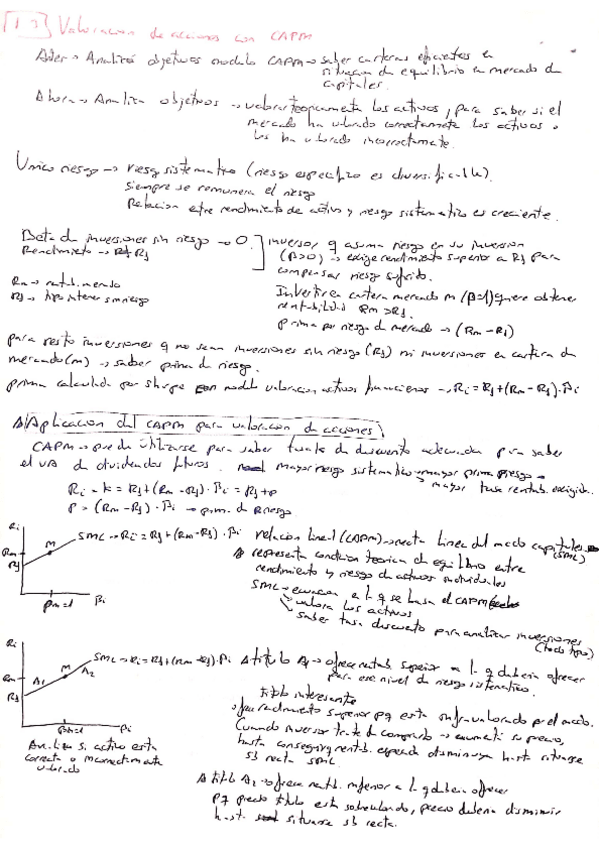 1.3 Valoracion de acciones con CAPM
Antes → Analizó objetivos modelo CAPM → saber carteras eficientes en
situacion de equilibrio en mercado de
capitales.
Ahora → Analiza objetivos → valorar teoricamente los activos, para saber si el
mercado ha valorado correctamente los activos o
los ha valorado incorrectamente.
Unico riesgo → riesgo sistematico (riesgo especifico es diversificable).
siempre se remunera el riesgo
Relacion entre rendimiento de activo y riesgo sistematico es creciente.
Beta de inversiones sin riesgo → 0.
Rendimiento → Rf
Rm → rentab. mercado
Rf → tipo interes sin riesgo
inversor q asuma riesgo en su inversion
(β>0) → exige rendimiento superior a Rf para
compensar riesgo sufrido.
Invertir en cartera mercado m (β=1) quiere obtener
rentabilidad Rm > Rf.
prima por riesgo de mercado → (Rm - Rf)
para resto inversiones q no sean inversiones sin riesgo (Rf) ni inversiones en cartera de
mercado (m) → saber prima de riesgo.
prima calculada por Sharpe con modelo valoracion activos financieros → Ri = Rf + (Rm - Rf) · βi
A) Aplicacion del CAPM para valoracion de acciones
CAPM → puede utilizarse para saber tasa k de descuento adecuada para saber
el VA de dividendos futuros. mayor riesgo sistematico → mayor prima riesgo →
mayor tasa rentab. exigida.
Ri = k = Rf + (Rm - Rf) · βi = Rf + p
p = (Rm - Rf) · βi → prima de riesgo
Ri
Rm
Rf
M
βm=1
βi
SML → Ri = Rf + (Rm - Rf) · βi
relacion lineal (CAPM) → recta linea del mcdo capitales
(SML)
representa condicion teorica de equilibrio entre
rendimiento y riesgo de activos individuales
SML → ecuacion a la q se basa el CAPM
valora los activos
saber tasa descuento para analizar inversiones
(todo tipo)
Ri
Rm
Rf
A1
M
A2
βm=1
βi
SML → Ri = Rf + (Rm - Rf) · βi
Analiza si activo esta
correcta o incorrectamente
valorado
titulo A1 → ofrece rentab. superior a la q deberia ofrecer
para ese nivel de riesgo sistematico.
titulo interesante
ofrece rendimiento superior pq esta infravalorado por el mcdo.
Cuando inversor trate de comprarlo → aumenta su precio,
hasta conseguir q rentab. esperada disminuya hasta situarse
sb recta SML.
titulo A2 → ofrece rentb. inferior a la q deberia ofrecer
pq precio titulo esta sobrevalorado, precio deberia disminuir
hasta situarse sb recta.